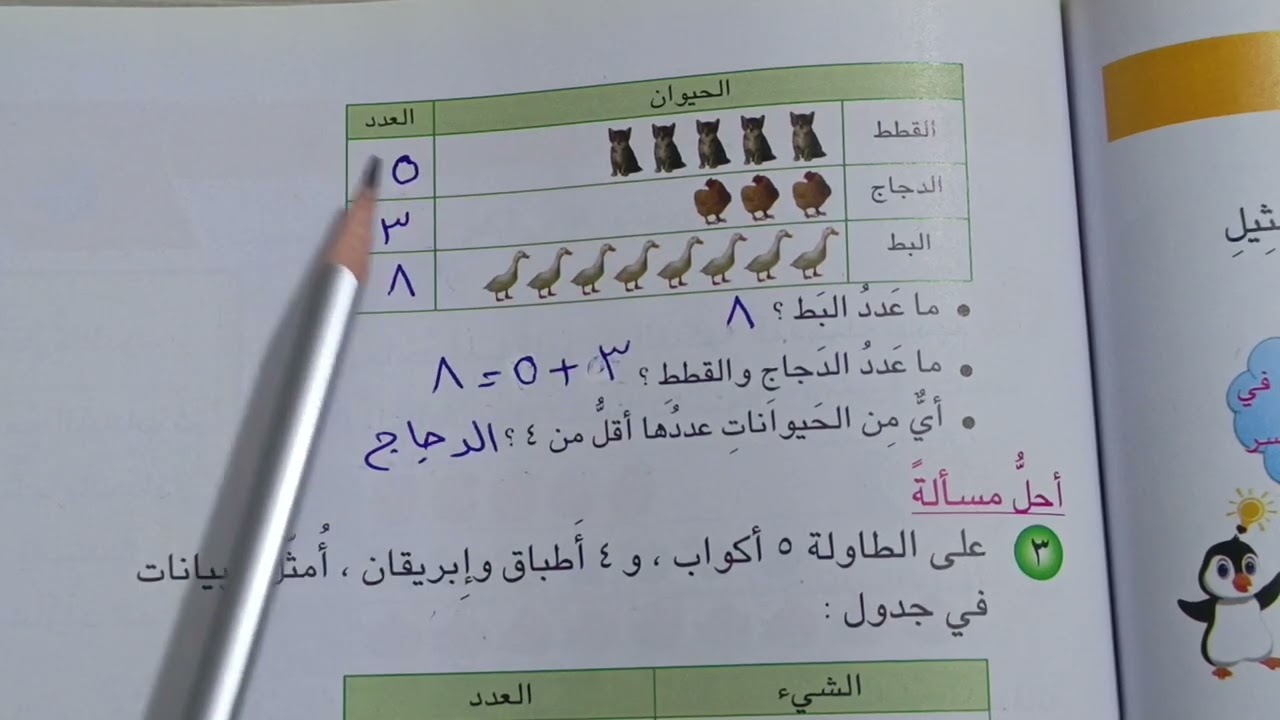 الحيوان العدد
القطط ٥
الدجاج ٣
البط ٨
• ما عَددُ البَط ؟ ٨
• ما عَددُ الدَجاجِ والقطط ؟ ٣ + ٥ = ٨
• أيٌّ مِن الحَيواناتِ عددُها أقلُّ من ٤ ؟ الدجاج
أحلُّ مسألةً
٣ على الطاولة ٥ أكواب ، و ٤ أَطباق وإِبريقان ، أُمثّل
في جدول :
الشيء العدد
في